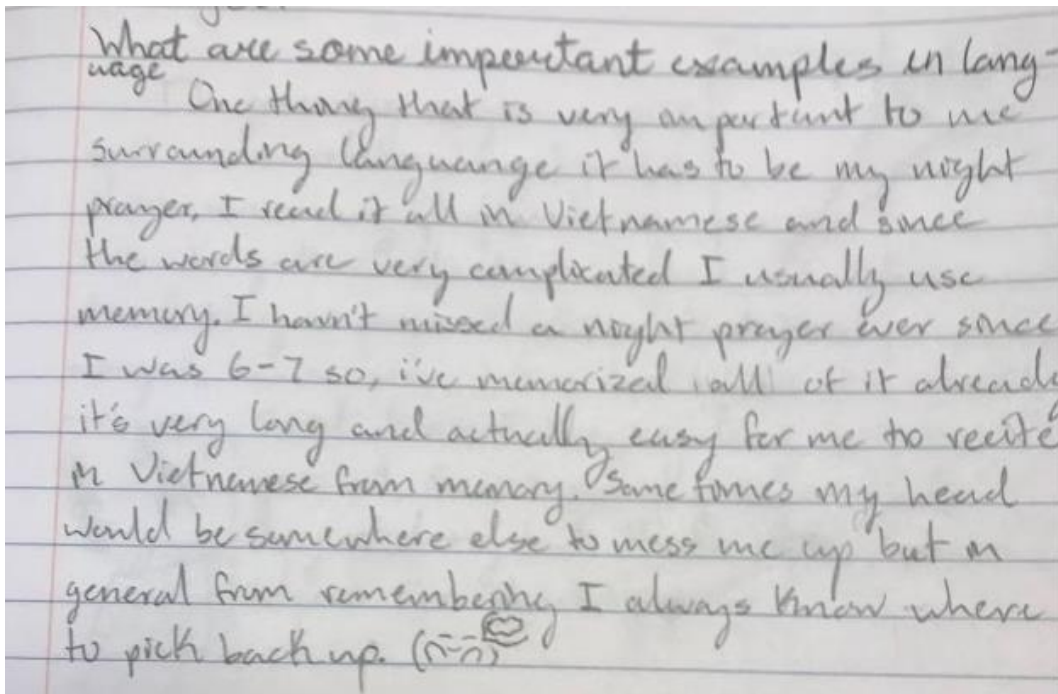 What are some important examples in lang-
uage
One thing that is very important to me
surrounding languange it has to be my night
prayer, I read it all in Vietnamese and since
the words are very complicated I usually use
memory. I havn't missed a night prayer ever since
I was 6-7 so, i've memorized all of it already
it's very long and actually easy for me to recite
in Vietnamese from memory. Sometimes my head
would be somewhere else to mess me up but in
general from remembering I always know where
to pick back up. (n-n)